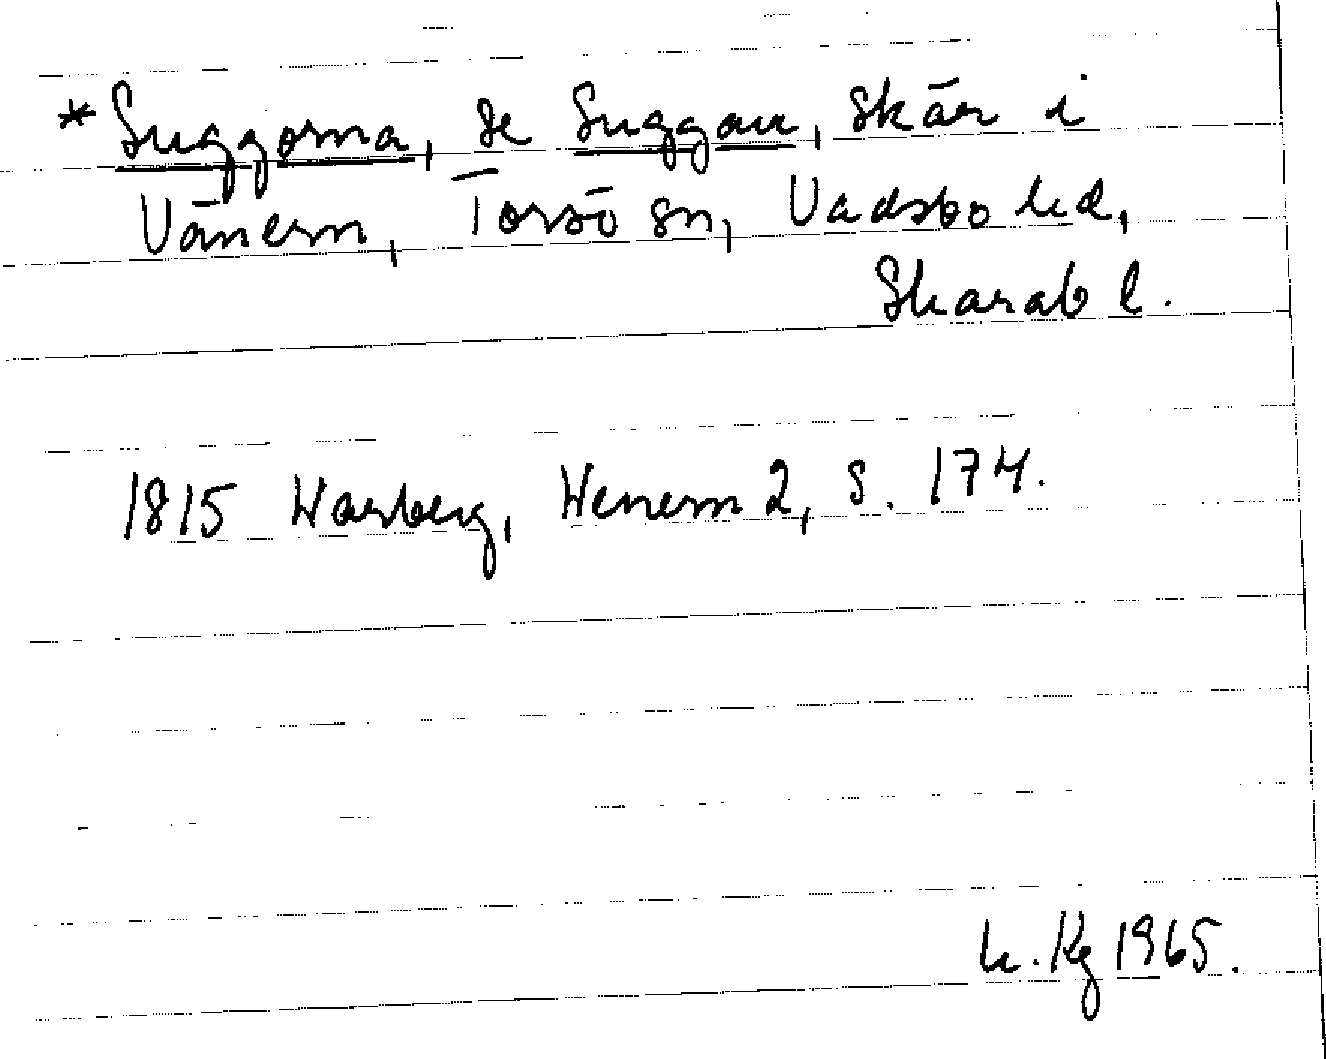 *Suggorna, se Suggan, skär i
Vänern, Torsö sn, Vadsbo hd,
Skarab l.
1815 Warberg, Wenern 2, s. 174.
h. Kg 1965.